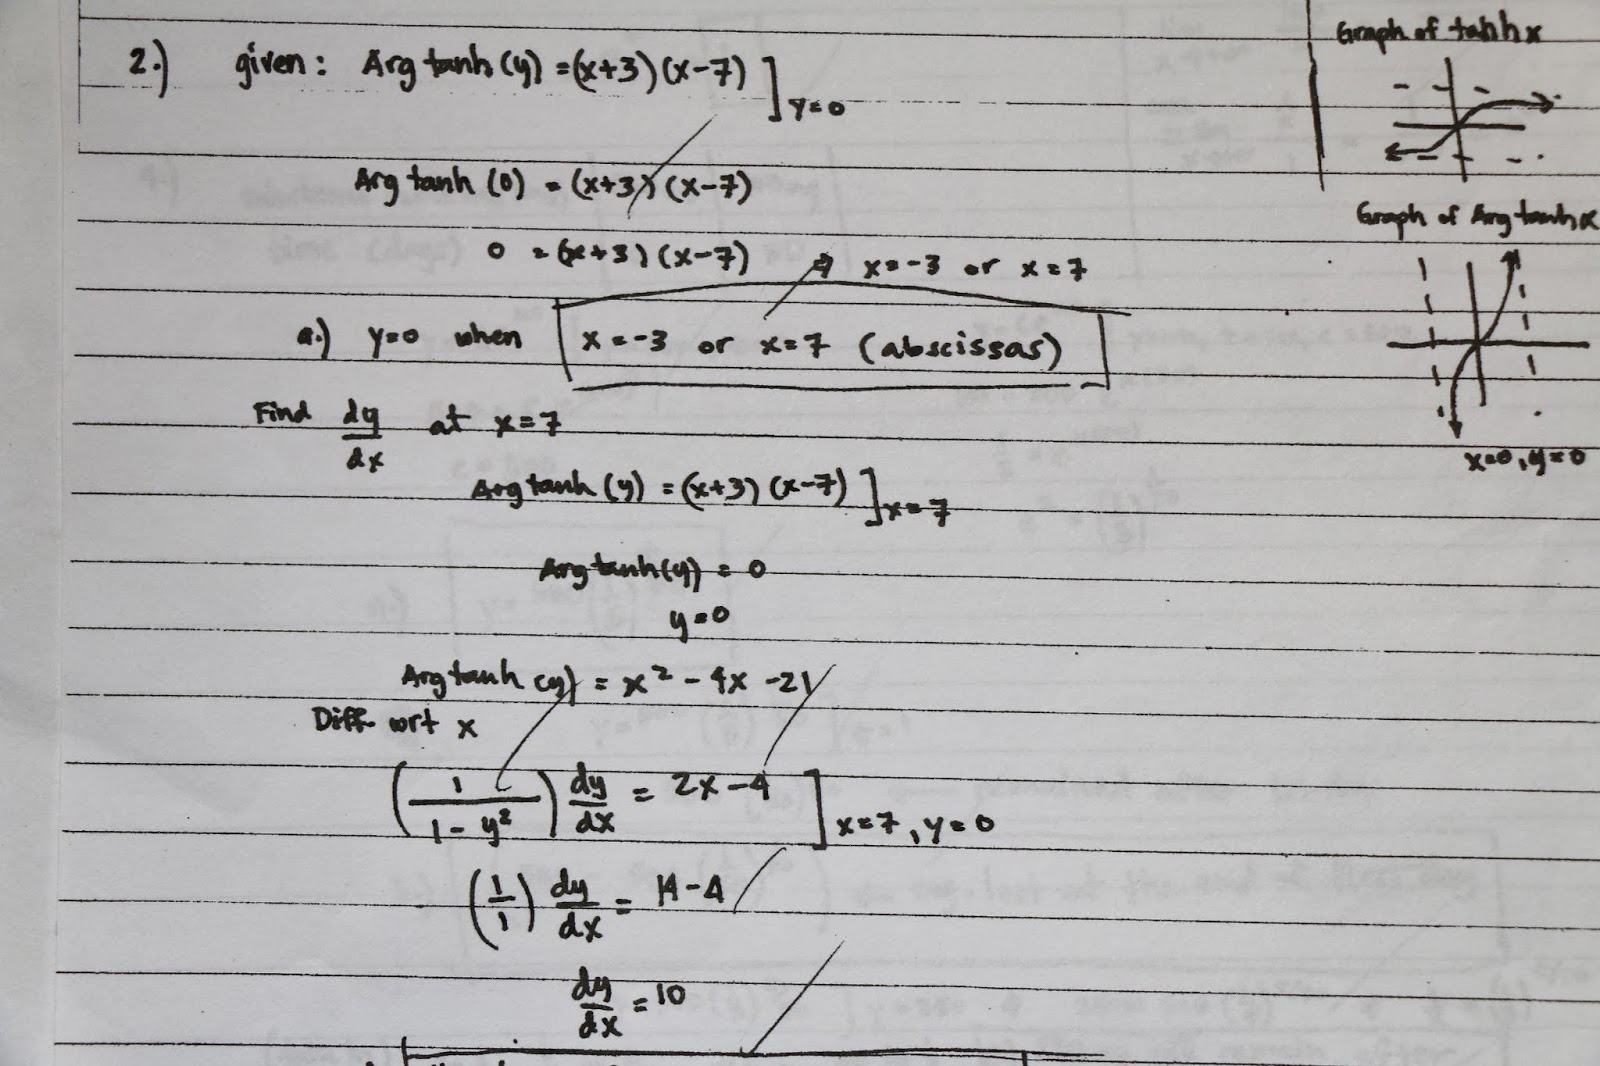 2.) given: Arg tanh (y) = (x+3)(x-7) ]y=0
Arg tanh (0) = (x+3)(x-7)
0 = (x+3)(x-7) → x=-3 or x=7
a.) y=0 when x=-3 or x=7 (abscissas)
Find dy/dx at x=7
Arg tanh (y) = (x+3)(x-7) ]x=7
Arg tanh (y) = 0
y=0
Arg tanh (y) = x² - 4x - 21
Diff. wrt x
(1/(1-y²)) dy/dx = 2x-4 ]x=7, y=0
(1/1) dy/dx = 14-4
dy/dx = 10
Graph of tanh x
Graph of Arg tanh x
x=0, y=0